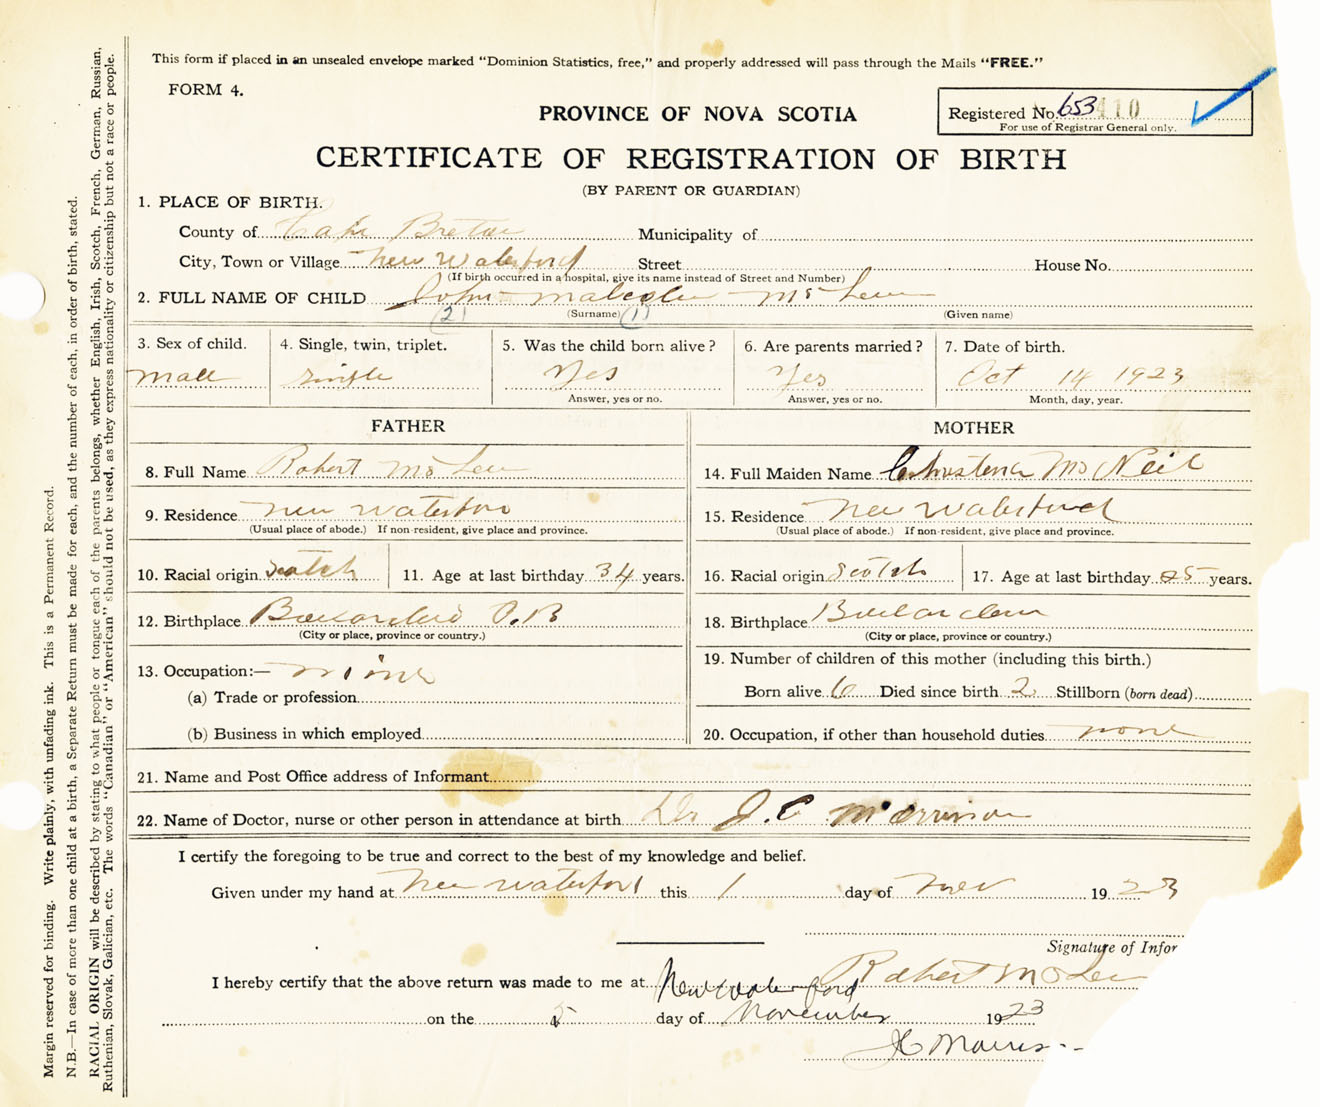 This form if placed in an unsealed envelope marked "Dominion Statistics, free," and properly addressed will pass through the Mails "FREE."
FORM 4.
PROVINCE OF NOVA SCOTIA
Registered No. 653 410
For use of Registrar General only.
CERTIFICATE OF REGISTRATION OF BIRTH
(BY PARENT OR GUARDIAN)
1. PLACE OF BIRTH.
County of Cape Breton Municipality of
City, Town or Village New Waterford Street House No.
(If birth occurred in a hospital, give its name instead of Street and Number)
2. FULL NAME OF CHILD John Malcolm Mc Lean
(2) (Surname) (1) (Given name)
3. Sex of child. 4. Single, twin, triplet. 5. Was the child born alive? 6. Are parents married? 7. Date of birth.
Male Single Yes Yes Oct 14 1923
Answer, yes or no. Answer, yes or no. Month, day, year.
FATHER MOTHER
8. Full Name Robert Mc Lean 14. Full Maiden Name Christena Mc Neil
9. Residence New Waterford 15. Residence New Waterford
(Usual place of abode.) If non-resident, give place and province. (Usual place of abode.) If non-resident, give place and province.
10. Racial origin Scotch 11. Age at last birthday 34 years. 16. Racial origin Scotch 17. Age at last birthday years.
12. Birthplace C.B 18. Birthplace
(City or place, province or country.) (City or place, province or country.)
13. Occupation:—
19. Number of children of this mother (including this birth.)
(a) Trade or profession Born alive 6 Died since birth 2 Stillborn (born dead)
(b) Business in which employed 20. Occupation, if other than household duties none
21. Name and Post Office address of Informant
22. Name of Doctor, nurse or other person in attendance at birth Dr J. C Morrison
I certify the foregoing to be true and correct to the best of my knowledge and belief.
Given under my hand at New Waterford this 1 day of Nov 1923
Signature of Infor
Robert Mc Lea
I hereby certify that the above return was made to me at New Waterford
on the 5 day of November 1923
Margin reserved for binding. Write plainly, with unfading ink. This is a Permanent Record.
N.B.—In case of more than one child at a birth, a Separate Return must be made for each, and the number of each, in order of birth, stated.
RACIAL ORIGIN will be described by stating to what people or tongue each of the parents belongs, whether English, Irish, Scotch, French, German, Russian,
Ruthenian, Slovak, Galician, etc. The words "Canadian" or "American" should not be used, as they express nationality or citizenship but not a race or people.